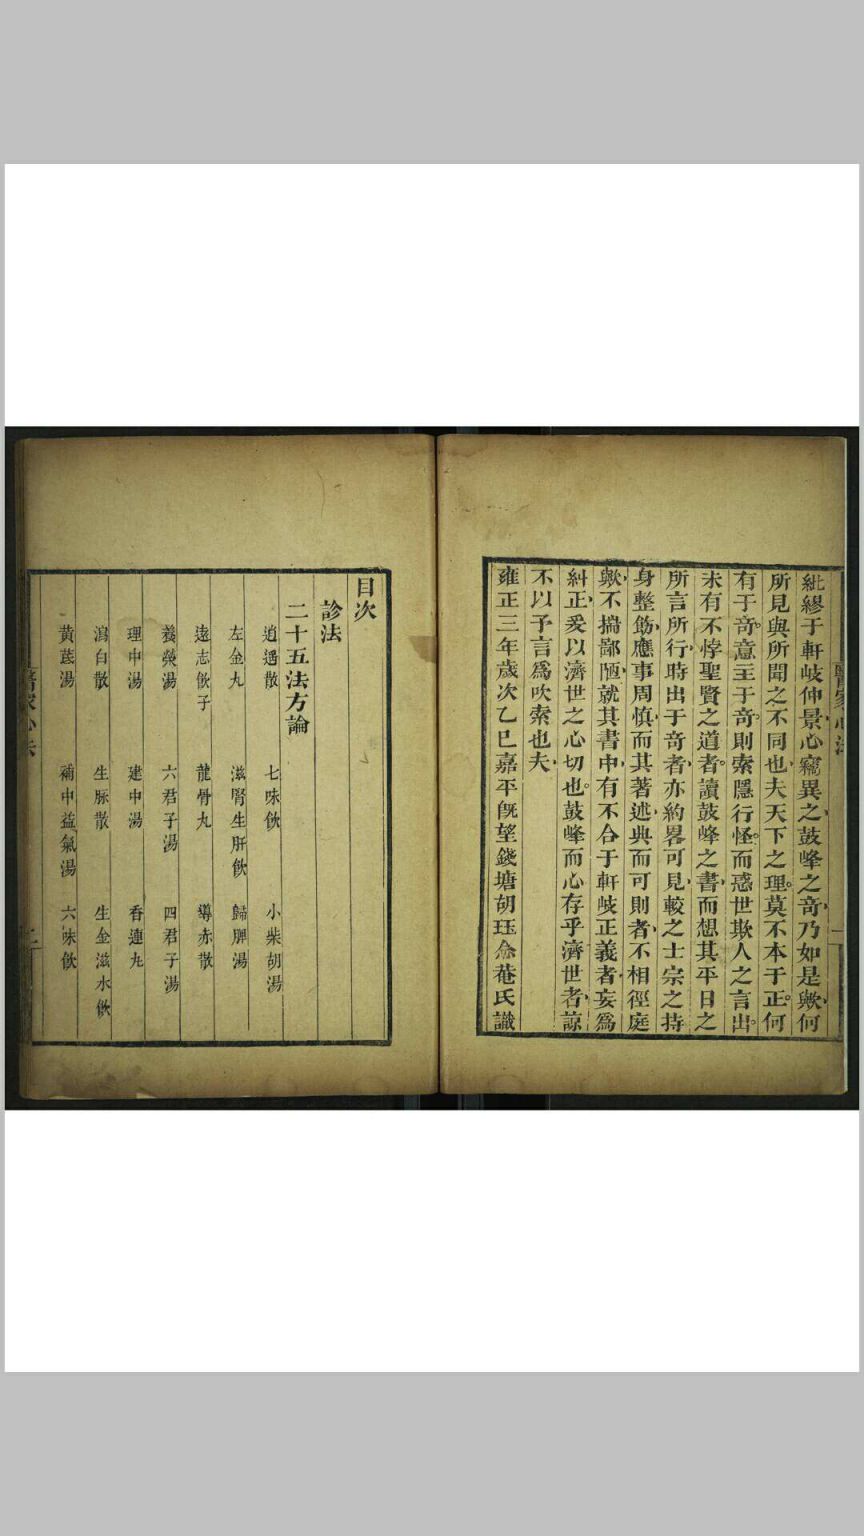 紕繆于軒岐仲景心竊異之鼓峰之奇乃如是歟何
所見與所聞之不同也夫天下之理莫不本于正何
有于奇意主于奇則索隱行怪而惑世欺人之言出
未有不悖聖賢之道者讀鼓峰之書而想其平日之
所言所行時出于奇者亦約畧可見較之士宗之持
身整飭應事周慎而其著述典而可則者不相徑庭
歟不揣鄙陋就其書中有不合于軒岐正義者妄爲
糾正爰以濟世之心切也鼓峰而心存乎濟世者諒
不以予言爲吹索也夫
雍正三年歲次乙巳嘉平旣望錢塘胡珏念菴氏識
醫家心法
一
目次
診法
二十五法方論
逍遙散 七味飲 小柴胡湯
左金丸 滋腎生肝飲 歸脾湯
遠志飲子 龍骨丸 導赤散
養榮湯 六君子湯 四君子湯
理中湯 建中湯 香連丸
瀉白散 生脈散 生金滋水飲
黃芪湯 補中益氣湯 六味飲
醫家心法
二